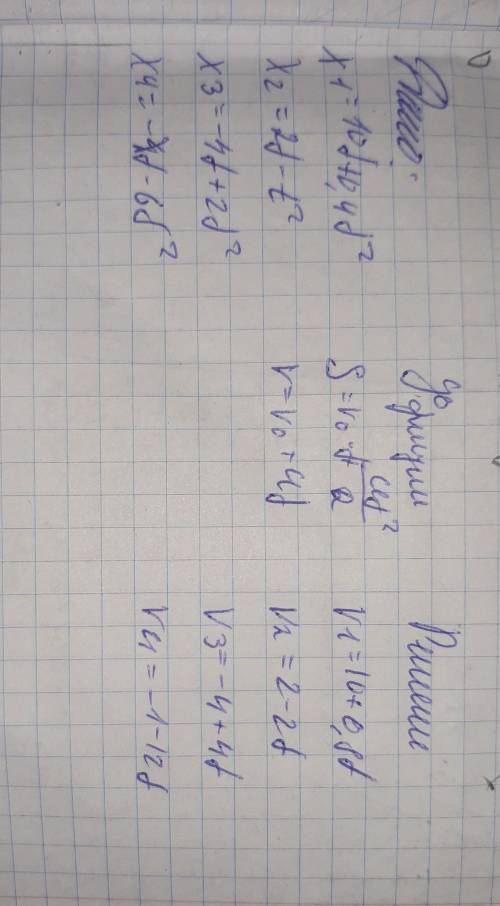 Дано:
x1=10t+0,4t²
x2=2t-t²
x3=-4t+2t²
x4=-t-6t²
формулы
S=v₀·t+at²/2
v=v₀+at
Решение
V1=10+0,8t
V2=2-2t
V3=-4+4t
V4=-1-12t